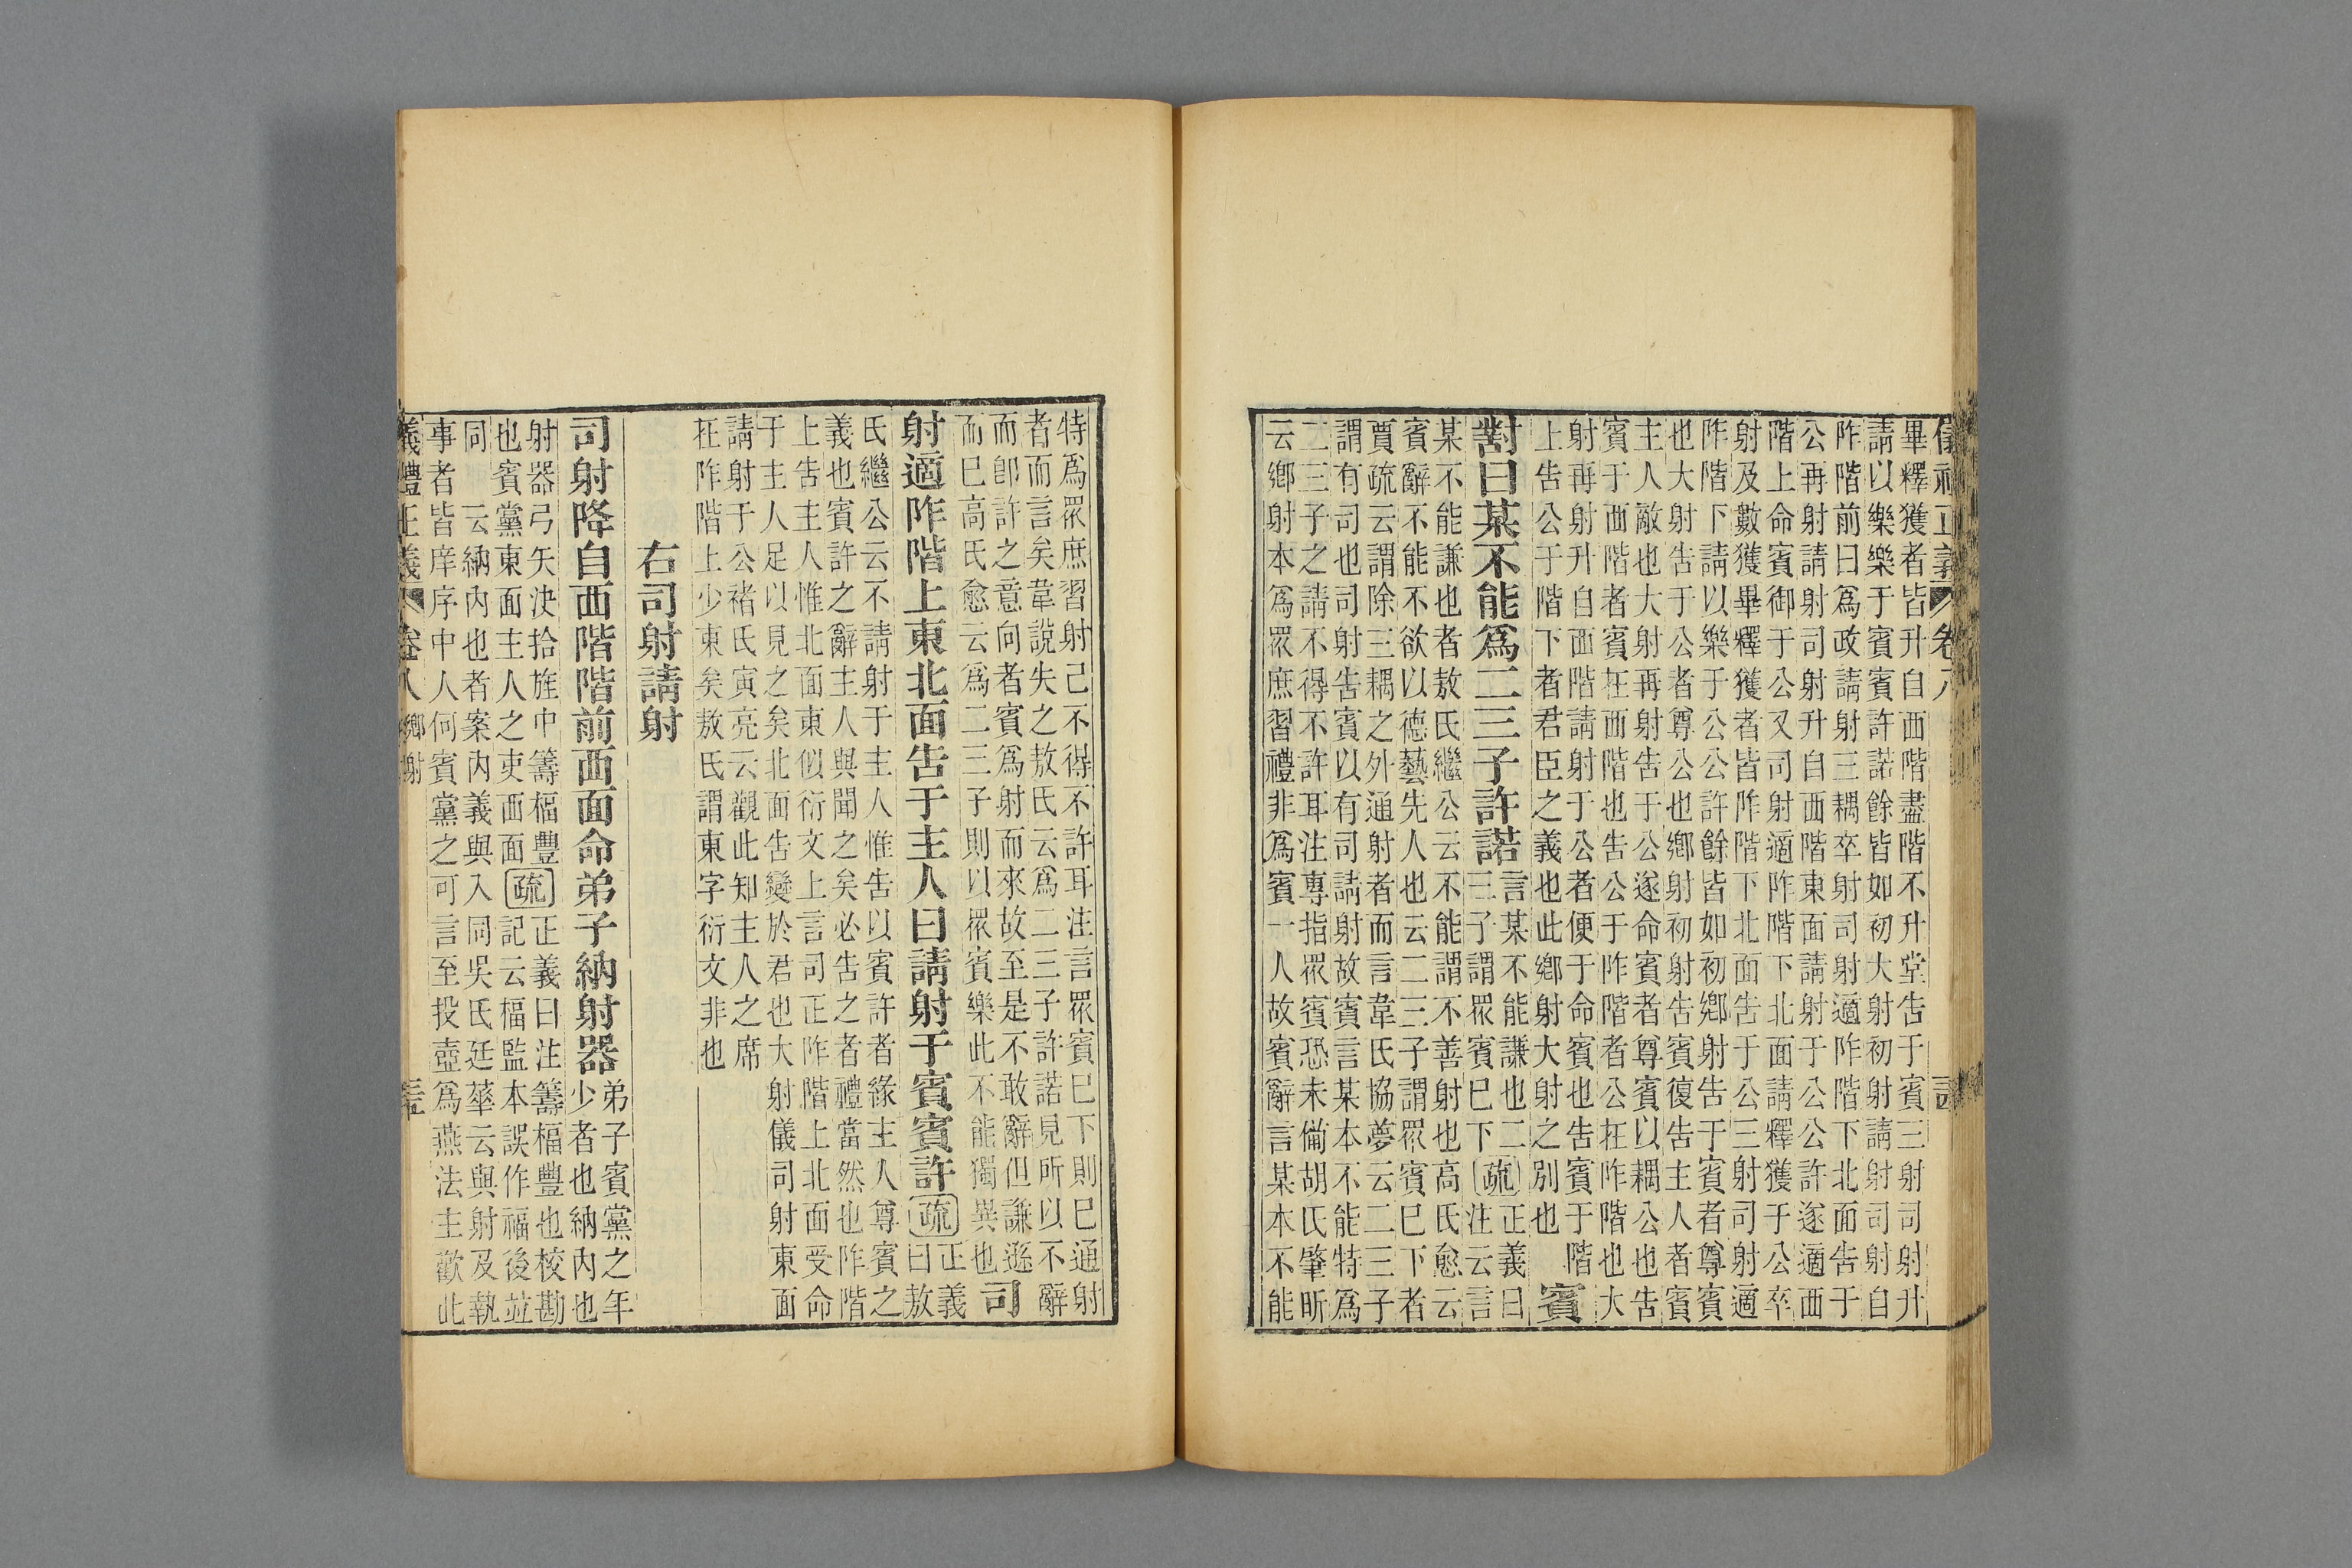 儀禮正義 卷八
畢釋獲者皆升自西階盡階不升堂告于賓三射司射升
請以樂樂于賓賓許諾餘皆如初大射初射請射司射自
阼階前曰爲政請射三耦卒射司射適阼階下北面告于
公再射請射司射升自西階東面請射于公公許遂適西
階上命賓御于公又司射適阼階下北面請釋獲于公卒
射及數獲畢釋獲者皆阼階下北面告于公三射司射適
阼階下請以樂于公公許餘皆如初鄉射告于賓者尊賓
也大射告于公者尊公也鄉射初射告賓復告主人者賓
主人敵也大射再射告于公遂命賓者尊賓以耦公也告
賓于西階者賓在西階也告公于阼階者公在阼階也大
射再射升自西階請射于公者便于命賓也告賓于階
上告公于階下者君臣之義也此鄉射大射之別也
賓
對曰某不能爲二三子許諾
言某不能謙也二
三子謂眾賓已下
疏
正義曰
注云言
某不能謙也者敖氏繼公云不能謂不善射也高氏愈云
賓辭不能不欲以德藝先人也云二三子謂眾賓已下者
賈疏云謂除三耦之外通射者而言韋氏協夢云二三子
謂有司也司射告賓以有司請射故賓言某本不能特爲
二三子之請不得不許耳注專指眾賓恐未備胡氏肇昕
云鄉射本爲眾庶習禮非爲賓一人故賓辭言某本不能
特爲眾庶習射己不得不許耳注言眾賓已下則已通射
者而言矣韋說失之敖氏云爲二三子許諾見所以不辭
而卽許之意向者賓爲射而來故至是不敢辭但謙遜
而已高氏愈云爲二三子則以眾賓樂此不能獨異也
司
射適阼階上東北面告于主人曰請射于賓賓許
疏
正義
曰敖
氏繼公云不請射于主人惟告以賓許者緣主人尊賓之
義也賓許之辭主人與聞之矣必告之者禮當然也阼階
上告主人惟北面東似衍文上言司正阼階上北面受命
于主人足以見之矣北面告變於君也大射儀司射東面
請射于公褚氏寅亮云觀此知主人之席
在阼階上少東矣敖氏謂東字衍文非也
右司射請射
司射降自西階階前西面命弟子納射器
弟子賓黨之年
少者也納內也
射器弓矢決拾旌中籌楅豐
也賓黨東面主人之吏西面
疏
正義曰注籌楅豐也校勘
記云楅監本誤作福後並
同　云納內也者案內義與入同吳氏廷華云與射及執
事者皆庠序中人何賓黨之可言至投壺爲燕法主歡此
義禮正義 卷八 鄉射